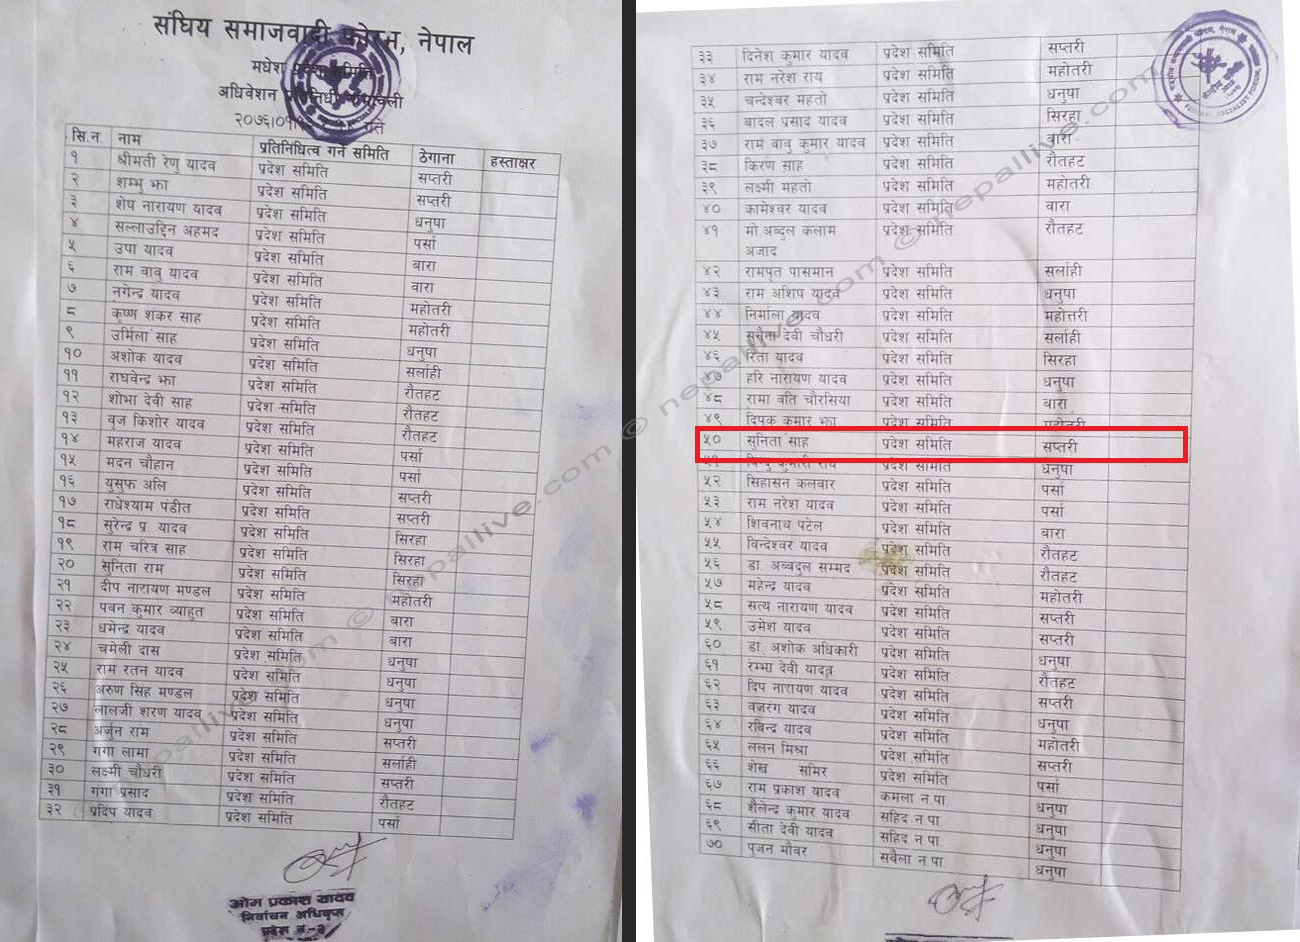 संघिय समाजवादी फोरम, नेपाल
मधेश प्रदेश समिति
अधिवेशन प्रतिनिधी नामावली
२०७६।०१ गते
सि.न. नाम प्रतिनिधित्व गर्ने समिति ठेगाना हस्ताक्षर
१ श्रीमती रेणु यादव प्रदेश समिति सप्तरी
२ शम्भु झा प्रदेश समिति सप्तरी
३ शेष नारायण यादव प्रदेश समिति धनुषा
४ सल्लाउद्दिन अहमद प्रदेश समिति पर्सा
५ उपा यादव प्रदेश समिति बारा
६ राम वाबु यादव प्रदेश समिति वारा
७ नगेन्द्र यादव प्रदेश समिति महोतरी
८ कृष्ण शंकर साह प्रदेश समिति महोतरी
९ उर्मिला साह प्रदेश समिति धनुषा
१० अशोक यादव प्रदेश समिति सर्लाही
११ राघवेन्द्र झा प्रदेश समिति रौतहट
१२ शोभा देवी साह प्रदेश समिति रौतहट
१३ बृज किशोर यादव प्रदेश समिति रौतहट
१४ महराज यादव प्रदेश समिति पर्सा
१५ मदन चौहान प्रदेश समिति पर्सा
१६ युसुफ अलि प्रदेश समिति सप्तरी
१७ राधेश्याम पंडीत प्रदेश समिति सप्तरी
१८ सुरेन्द्र प्र. यादव प्रदेश समिति सिरहा
१९ राम चरित्र साह प्रदेश समिति सिरहा
२० सुनिता राम प्रदेश समिति सिरहा
२१ दीप नारायण मण्डल प्रदेश समिति महोतरी
२२ पवन कुमार व्याहुत प्रदेश समिति बारा
२३ धमेन्द्र यादव प्रदेश समिति बारा
२४ चमेली दास प्रदेश समिति धनुषा
२५ राम रतन यादव प्रदेश समिति धनुषा
२६ अरुण सिंह मण्डल प्रदेश समिति धनुषा
२७ लालजी शरण यादव प्रदेश समिति धनुषा
२८ अर्जुन राम प्रदेश समिति सप्तरी
२९ गंगा लामा प्रदेश समिति सर्लाही
३० लक्ष्मी चौधरी प्रदेश समिति सप्तरी
३१ गंगा प्रसाद प्रदेश समिति रौतहट
३२ प्रदिप यादव प्रदेश समिति पर्सा
ओम प्रकाश यादव
निर्वाचन अधिकृत
प्रदेश नं.-२
३३ दिनेश कुमार यादव प्रदेश समिति सप्तरी
३४ राम नरेश राय प्रदेश समिति महोतरी
३५ चन्देश्वर महतो प्रदेश समिति धनुषा
३६ बादल प्रसाद यादव प्रदेश समिति सिरहा
३७ राम वाबु कुमार यादव प्रदेश समिति वारा
३८ किरण साह प्रदेश समिति रौतहट
३९ लक्ष्मी महतो प्रदेश समिति महोतरी
४० कामेश्वर यादव प्रदेश समिति वारा
४१ मो.अब्दुल कलाम प्रदेश समिति रौतहट
अजाद
४२ रामपृत पासमान प्रदेश समिति सर्लाही
४३ राम अशिष यादव प्रदेश समिति धनुषा
४४ निर्माला यादव प्रदेश समिति महोत्तरी
४५ सुनैना देवी चौधरी प्रदेश समिति सर्लाही
४६ रिता यादव प्रदेश समिति सिरहा
४७ हरि नारायण यादव प्रदेश समिति धनुषा
४८ रामा वति चौरसिया प्रदेश समिति बारा
४९ दिपक कुमार झा प्रदेश समिति महोतरी
५० सुनिता साह प्रदेश समिति सप्तरी
५१ विन्दु कुमारी राय प्रदेश समिति धनुषा
५२ सिंहासन कलवार प्रदेश समिति पर्सा
५३ राम नरेश यादव प्रदेश समिति पर्सा
५४ शिवनाथ पटेल प्रदेश समिति बारा
५५ विन्देश्वर यादव प्रदेश समिति रौतहट
५६ डा. अब्बदुल सम्मद प्रदेश समिति रौतहट
५७ महेन्द्र यादव प्रदेश समिति महोतरी
५८ सत्य नारायण यादव प्रदेश समिति सप्तरी
५९ उमेश यादव प्रदेश समिति सप्तरी
६० डा. अशोक अधिकारी प्रदेश समिति धनुषा
६१ रम्भा देवी प्रदेश समिति रौतहट
६२ दिप नारायण यादव प्रदेश समिति सप्तरी
६३ वजरंग यादव प्रदेश समिति धनुषा
६४ रविन्द्र यादव प्रदेश समिति महोतरी
६५ ललन मिश्रा प्रदेश समिति सप्तरी
६६ शेख समिर प्रदेश समिति पर्सा
६७ राम प्रकाश यादव कमला न.पा. धनुषा
६८ शैलेन्द्र कुमार यादव सहिद न.पा. धनुषा
६९ सीता देवी यादव सहिद न.पा. धनुषा
७० पुजन मौवर सवैला न.पा. धनुषा
nepallive.com © nepallive.com © nepallive.com © nepallive.com